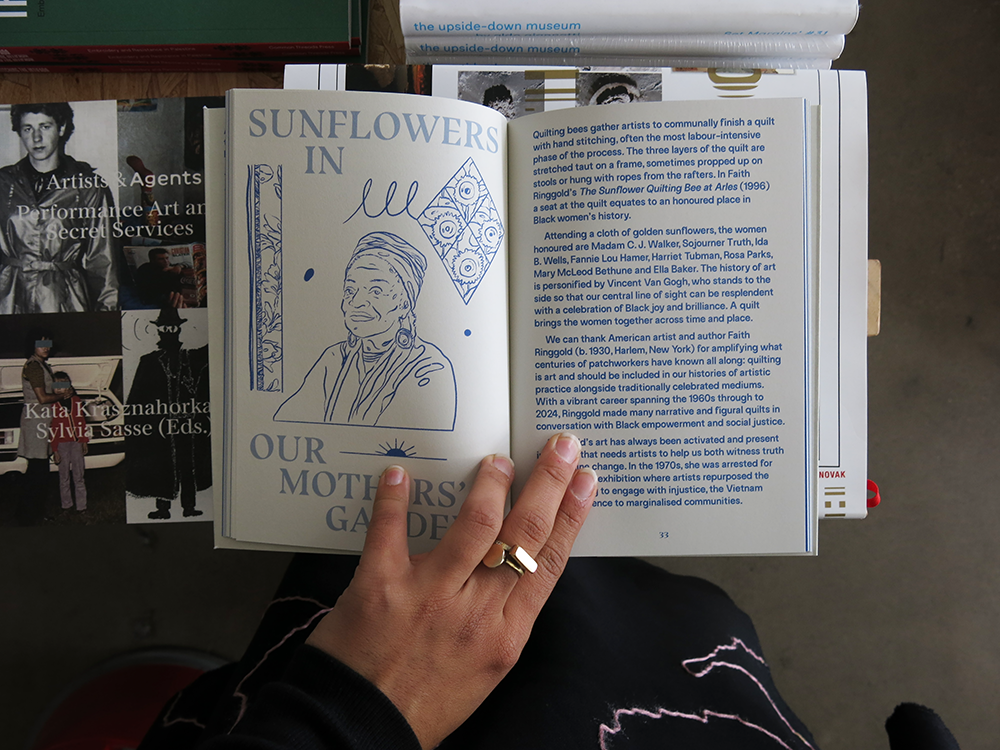 the upside-down museum
the upside-down museum
SUNFLOWERS
IN
OUR
MOTHERS'
Quilting bees gather artists to communally finish a quilt
with hand stitching, often the most labour-intensive
phase of the process. The three layers of the quilt are
stretched taut on a frame, sometimes propped up on
stools or hung with ropes from the rafters. In Faith
Ringgold's The Sunflower Quilting Bee at Arles (1996)
a seat at the quilt equates to an honoured place in
Black women's history.
Attending a cloth of golden sunflowers, the women
honoured are Madam C. J. Walker, Sojourner Truth, Ida
B. Wells, Fannie Lou Hamer, Harriet Tubman, Rosa Parks,
Mary McLeod Bethune and Ella Baker. The history of art
is personified by Vincent Van Gogh, who stands to the
side so that our central line of sight can be resplendent
with a celebration of Black joy and brilliance. A quilt
brings the women together across time and place.
We can thank American artist and author Faith
Ringgold (b. 1930, Harlem, New York) for amplifying what
centuries of patchworkers have known all along: quilting
is art and should be included in our histories of artistic
practice alongside traditionally celebrated mediums.
With a vibrant career spanning the 1960s through to
2024, Ringgold made many narrative and figural quilts in
conversation with Black empowerment and social justice.
art has always been activated and present
that needs artists to help us both witness truth
change. In the 1970s, she was arrested for
exhibition where artists repurposed the
to engage with injustice, the Vietnam
to marginalised communities.
33
Artists & Agents
Performance Art an
Secret Services
Kata Krasznahorka
Sylvia Sasse (Eds.)
NOVAK